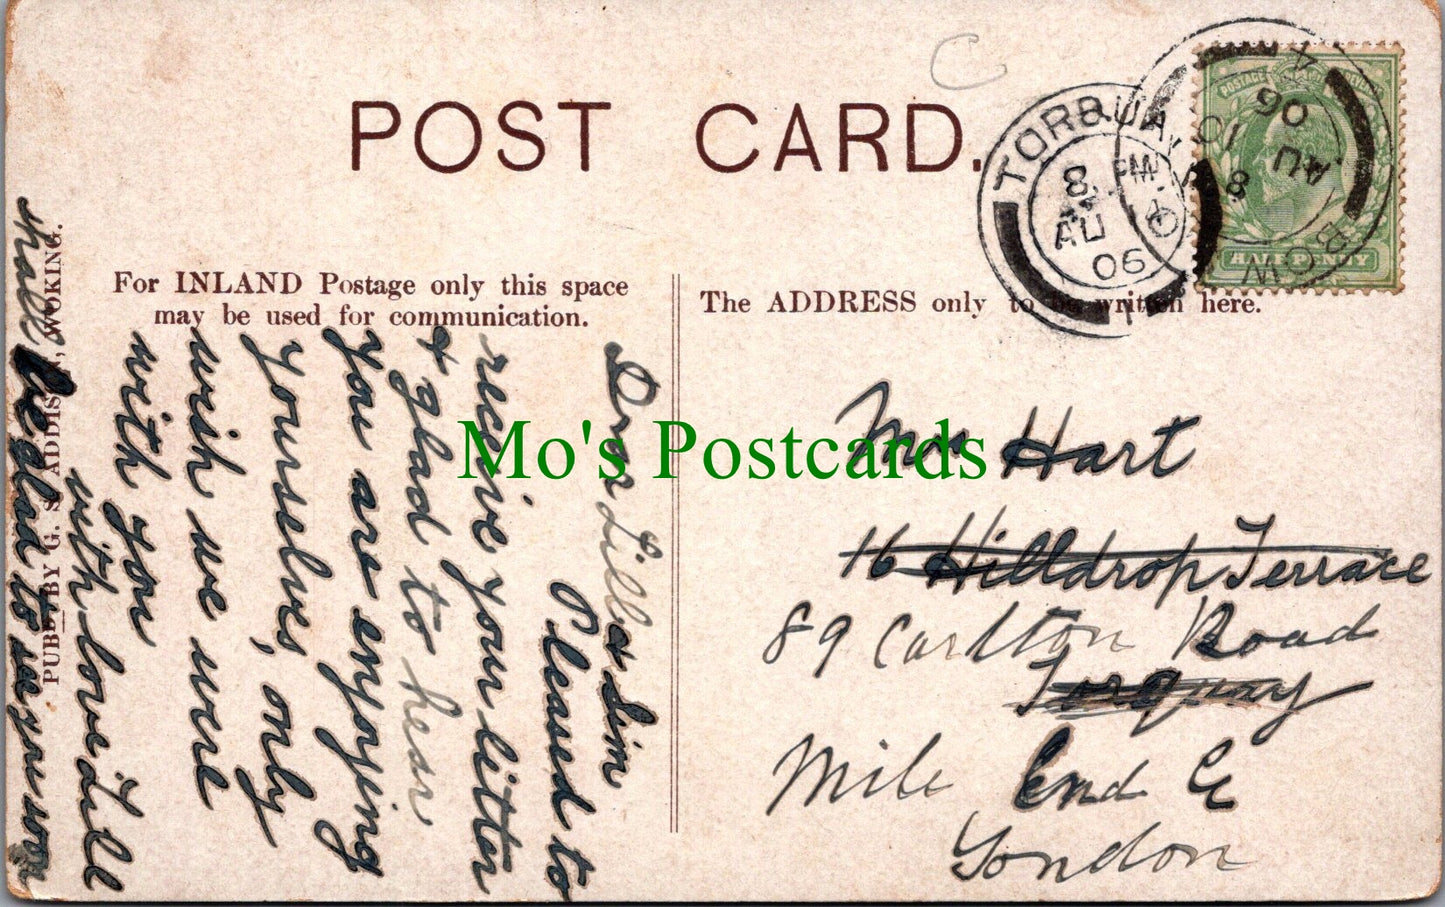 POST CARD.
For INLAND Postage only this space
may be used for communication.
The ADDRESS only to be written here.
TORQUAY
8 PM
AU 10
06
BOW
8
AU 10
06
POSTAGE
HALFPENNY
Mrs Hart
16 Hilldrop Terrace
89 Carlton Road
Torquay
Mile End E
London
Dear Lill & Jim
Pleased to
receive your letter
& glad to hear
you are enjoying
yourselves, only
wish we were
with you
with love Lill
shall be glad to see you soon
PUBD BY G. S. ADDISON, WOKING.
Mo's Postcards
C